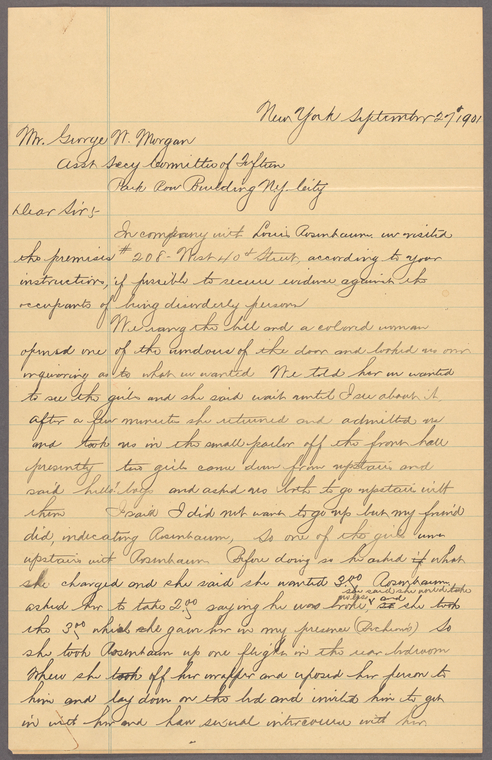 New York September 27th 1901
Mr. George W. Morgan
Asst Secy Committee of Fifteen
Park Row Building N.Y. City
Dear Sir:-
In company with Louis Rosenbaum we visited
the premises # 208 - West 40th Street, according to your
instructions, if possible to secure evidence against the
occupants of being disorderly person
We rang the bell and a colored woman
opened one of the windows of the door and looked us over
inquiring as to what we wanted We told her we wanted
to see the girls and she said wait until I see about it,
After a few minutes she returned and admitted us
and took us in the small parlor off the front hall
presently two girls came down from upstairs and
said hello boys and asked us both to go upstairs with
them I said I did not want to go up but my friend
did, indicating Rosenbaum, So one of the girls went
upstairs with Rosenbaum Before doing so he asked if what
she charged and she said she wanted 3.00 Rosenbaum
asked her to take 2.00 saying he was broke, she said she would take
and so she took
the 3.00 which she gave her in my presence
So
she took Rosenbaum up one flight in the rear bedroom
Where she took off her wrapper and exposed her person to
him and lay down on the bed and invited him to get
in with her and have sexual intercourse with her